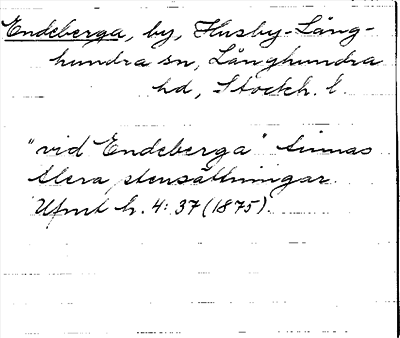 Endeberga, by, Husby-Lång-
hundra sn, Långhundra
hd, Stockh. l.
"vid Endeberga" finnas
flera stensättningar
Ufmt h. 4: 37 (1875).